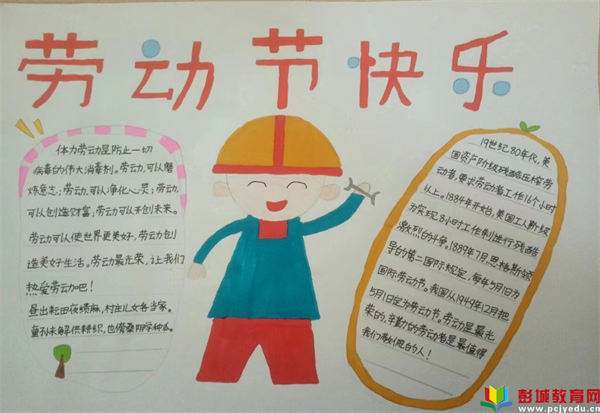 劳动节快乐
体力劳动是防止一切
病毒的伟大消毒剂。劳动,可以磨
炼意志;劳动,可以净化心灵;劳动,
可以创造财富;劳动可以开创未来。
劳动可以使世界更美好,劳动创
造美好生活。劳动最光荣,让我们
热爱劳动吧!
昼出耘田夜绩麻,村庄儿女各当家。
童孙未解供耕织,也傍桑阴学种瓜。
19世纪80年代,美
国资产阶级残酷压榨劳
动者,要求劳动者工作16个小时
以上。1884年开始,美国工人阶级
为实现8小时工作制进行残酷
激烈的斗争。1889年7月,恩格斯领
导的第二国际规定,每年5月1日为
国际劳动节。我国从1949年12月把
5月1日定为劳动节。劳动是最光
荣的,辛勤的劳动者是最值得
我们尊敬的人!
彭城教育网
www.pcjyedu.cn